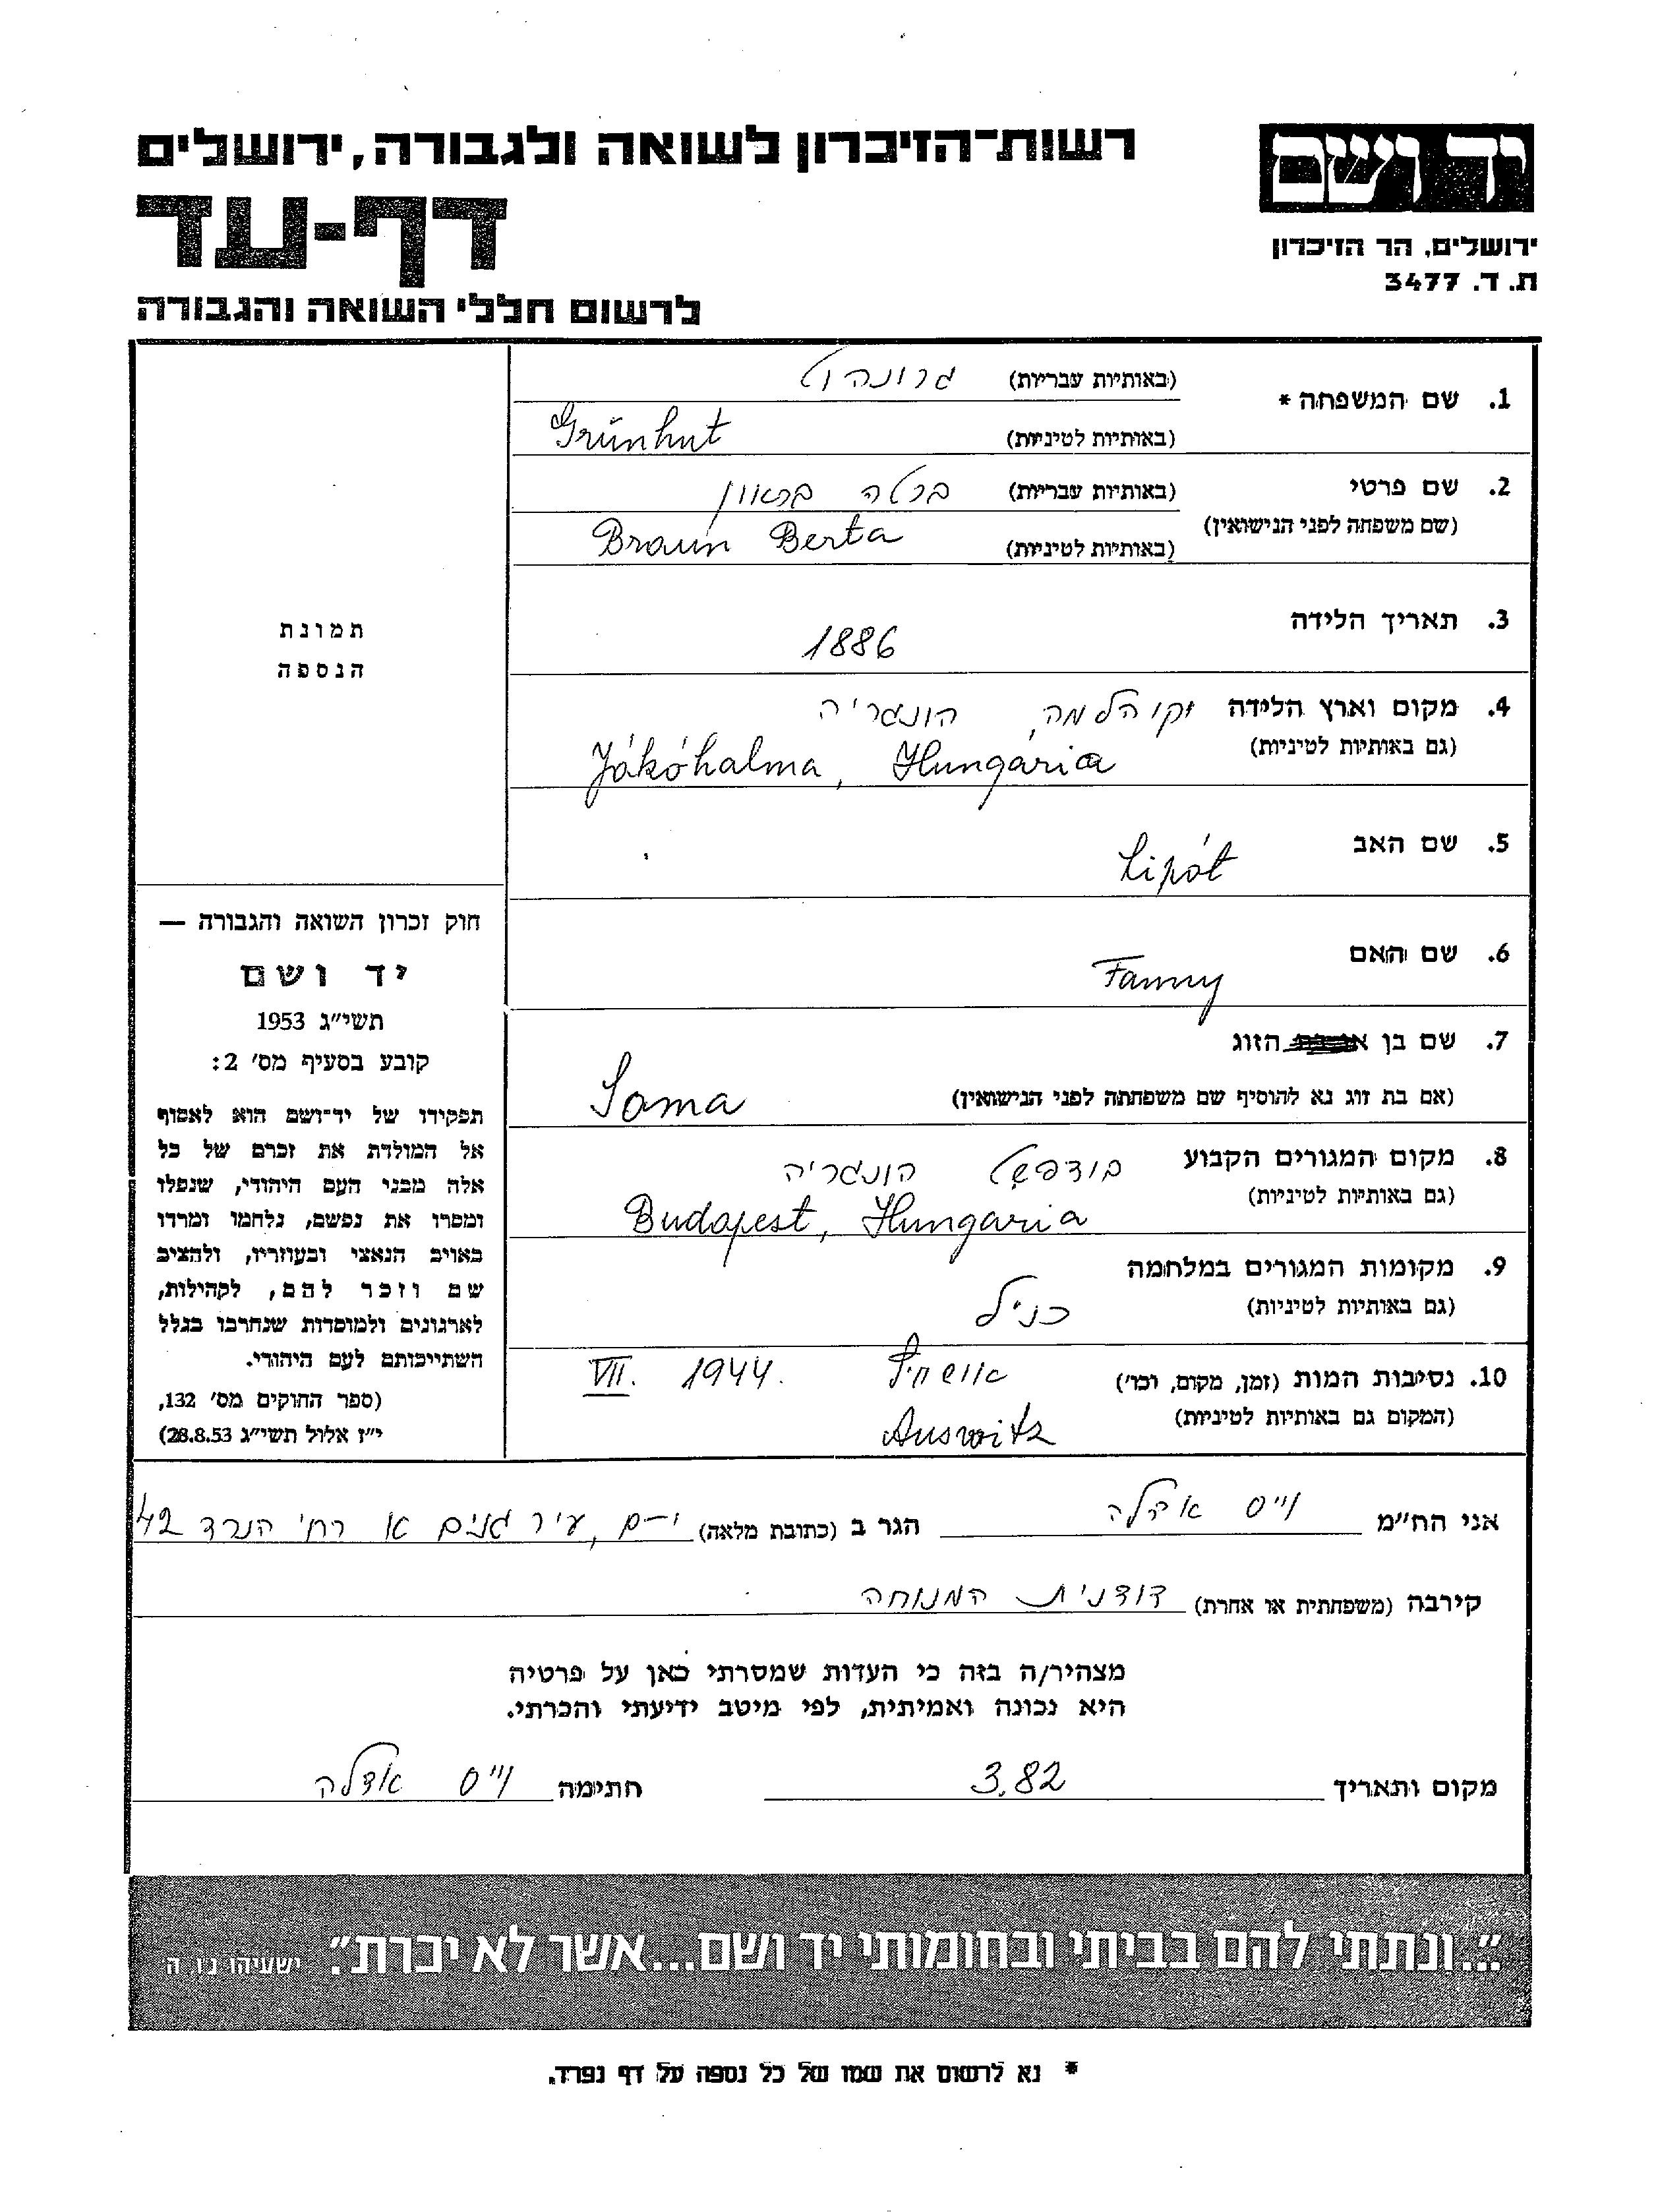 רשות-הזיכרון לשואה ולגבורה, ירושלים
יד ושם
דף-עד
ירושלים, הר הזיכרון
ת. ד. 3477
לרשום חללי השואה והגבורה
1. שם המשפחה * (באותיות עבריות) גרונהוט
(באותיות לטיניות) Grünhut
2. שם פרטי (באותיות עבריות) ברטה בראון
(שם משפחה לפני הנישואין)
(באותיות לטיניות) Braun Berta
3. תאריך הלידה 1886
4. מקום וארץ הלידה יקוהלמה, הונגריה
(גם באותיות לטיניות) Jákóhalma, Hungária
5. שם האב Lipót
6. שם האם Fanny
7. שם בן הזוג
(אם בת זוג נא להוסיף שם משפחתה לפני הנישואין) Soma
8. מקום המגורים הקבוע בודפשט הונגריה
(גם באותיות לטיניות) Budapest, Hungaria
9. מקומות המגורים במלחמה
(גם באותיות לטיניות) כנ"ל
10. נסיבות המות (זמן, מקום, וכד') אושויץ VII. 1944.
(המקום גם באותיות לטיניות) Auswitz
תמונת
הנספה
חוק זכרון השואה והגבורה —
יד ושם
תשי"ג 1953
קובע בסעיף מס' 2:
תפקידו של יד-ושם הוא לאסוף
אל המולדת את זכרם של כל
אלה מבני העם היהודי, שנפלו
ומסרו את נפשם, נלחמו ומרדו
באויב הנאצי ובעוזריו, ולהציב
שם וזכר להם, לקהילות,
לארגונים ולמוסדות שנחרבו בגלל
השתייכותם לעם היהודי.
(ספר החוקים מס' 132,
י"ז אלול תשי"ג 28.8.53)
אני הח"מ וייס אדלה הגר ב (כתובת מלאה) י-ם, עיר גנים א רח' הנרד 42
קירבה (משפחתית או אחרת) דודנית המנוחה
מצהיר/ה בזה כי העדות שמסרתי כאן על פרטיה
היא נכונה ואמיתית, לפי מיטב ידיעתי והכרתי.
מקום ותאריך 3.82 חתימה וייס אדלה
"...ונתתי להם בביתי ובחומותי יד ושם...אשר לא יכרת". ישעיהו נו, ה
* נא לרשום את שמו של כל נספה על דף נפרד.